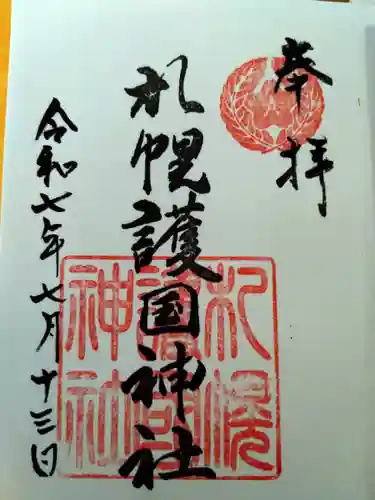 奉拝
札幌護国神社
令和七年七月十三日
札幌
護国
神社